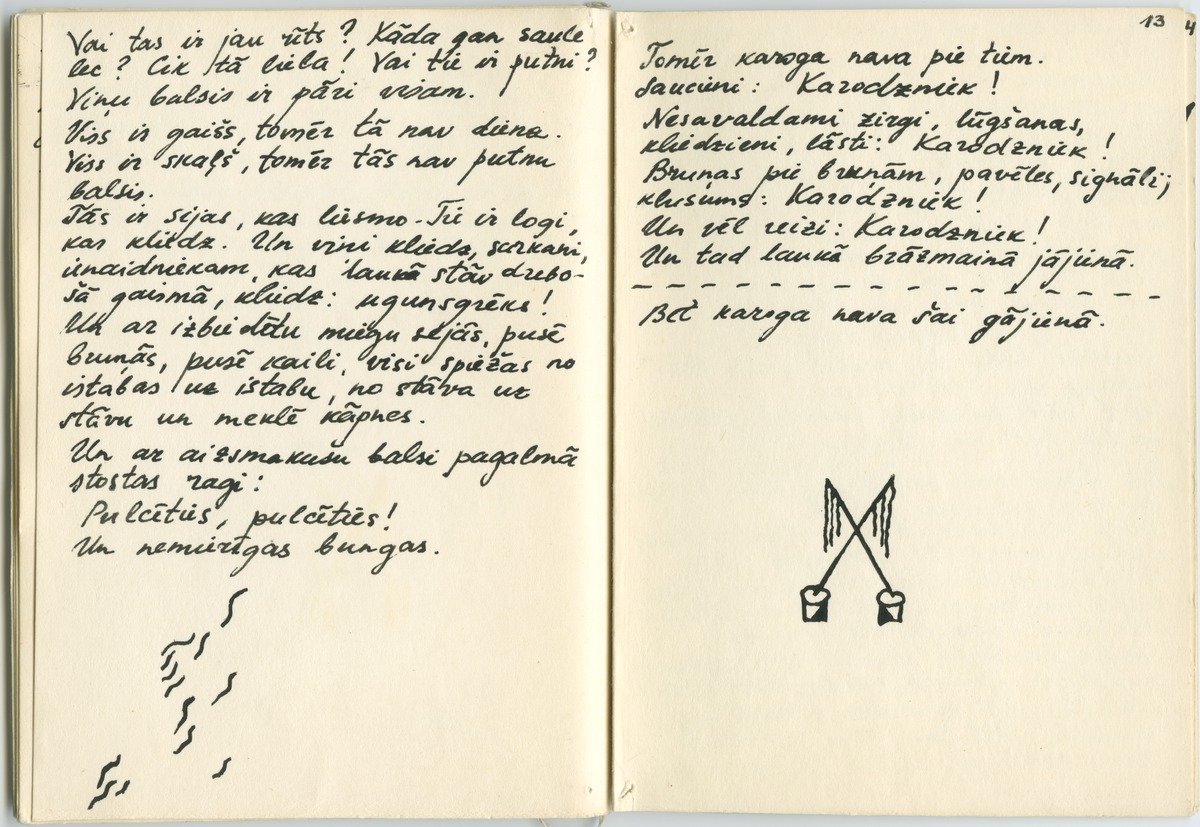 Vai tas ir jau rīts? Kāda gan saule
lec? Cik tā liela! Vai tie ir putni?
Viņu balsis ir pāri visam.
Viss ir gaišs, tomēr tā nav diena.
Viss ir skaļš, tomēr tās nav putnu
balsis.
Tās ir sijas, kas liesmo. Tie ir logi,
kas kliedz. Un viņi kliedz, sarkani,
ienaidniekam, kas laukā stāv drebo-
šā gaismā, kliedz: ugunsgrēks!
Un ar izbiedētu miegu sejās, pusē
bruņās, pusē kaili, visi spiežas no
istabas uz istabu, no stāva uz
stāvu un meklē kāpnes.
Un ar aizsmakušu balsi pagalmā
stostas ragi:
Pulcēties, pulcēties!
Un nemierīgas bungas.
13
4
Tomēr karoga nava pie tiem.
Saucieni: Karodzniek!
Nesavaldāmi zirgi, lūgšanas,
kliedzieni, lāsti: Karodzniek!
Bruņas pie bruņām, pavēles, signāli;
klusums: Karodzniek!
Un vēl reizi: Karodzniek!
Un tad laukā brāzmainā jājienā.
Bet karoga nava šai gājienā.